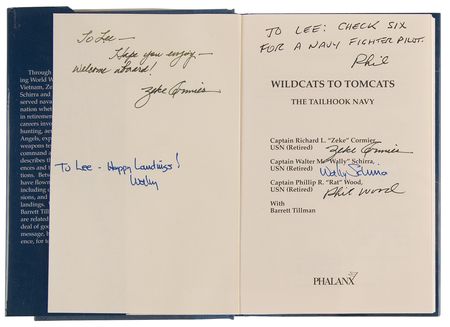 Through
ing World W
Vietnam, Ze
Schirra and
served nava
nation wheth
in retiremen
careers invo
hunting, aer
weapons tes
command a
describes th
ences and t
tions. Betw
have flown
including
sions, and
landings.
Barrett Tillman
are related
deal of goo
message, h
ence, for to
To Lee—
Hope you enjoy—
Welcome aboard!
Zeke Cormier
To Lee - Happy Landings!
Wally
TO LEE: CHECK SIX
FOR A NAVY FIGHTER PILOT.
Phil
WILDCATS TO TOMCATS
THE TAILHOOK NAVY
Captain Richard L. "Zeke" Cormier,
USN (Retired) Zeke Cormier
Captain Walter M. "Wally" Schirra,
USN (Retired) Wally Schirra
Captain Phillip R. "Rat" Wood,
USN (Retired) Phil Wood
With
Barrett Tillman
PHALANX